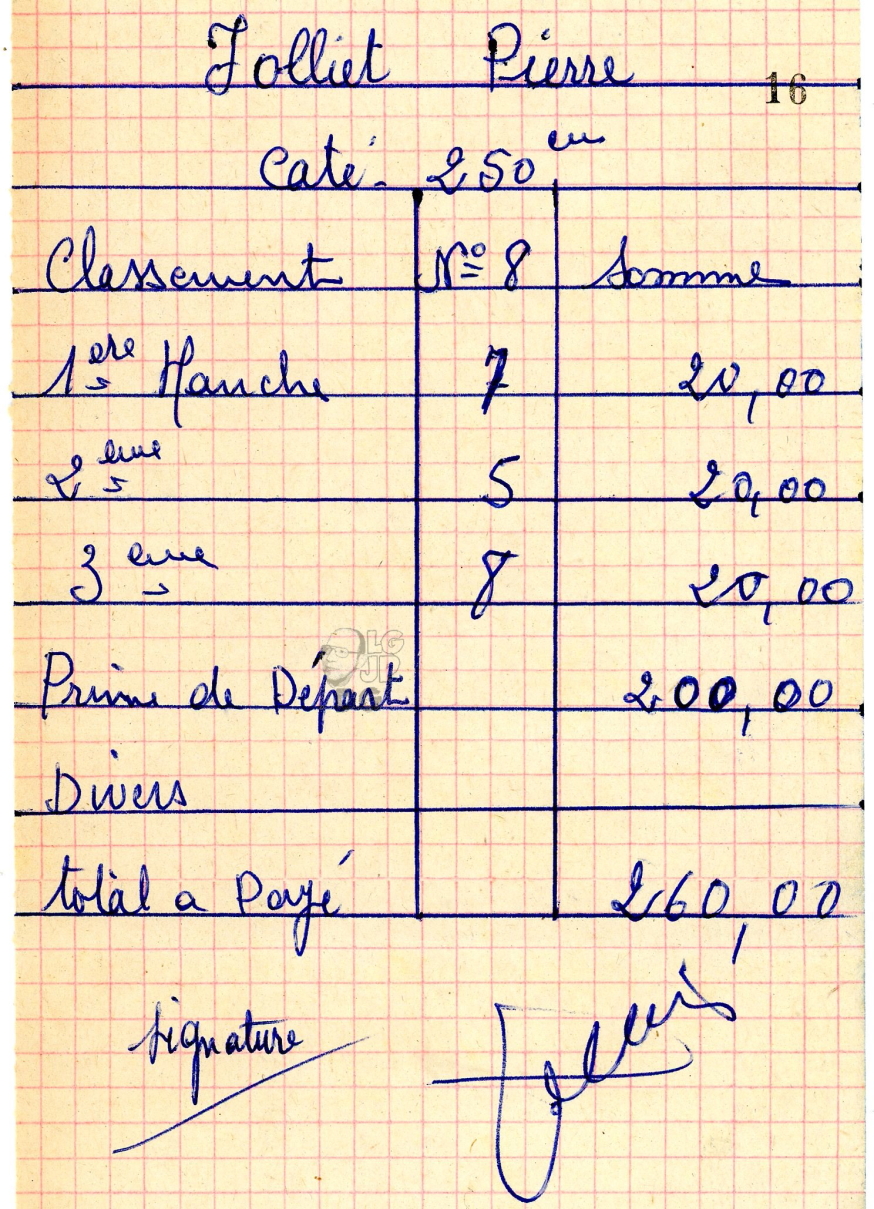 Jolliet Pierre
16
Caté. 250 cm
Classement N° 8 Somme
1ere Manche 7 20,00
2eme 5 20,00
3eme 8 20,00
LG
JP
Prime de Départ 200,00
Divers
total a Payé 260,00
signature